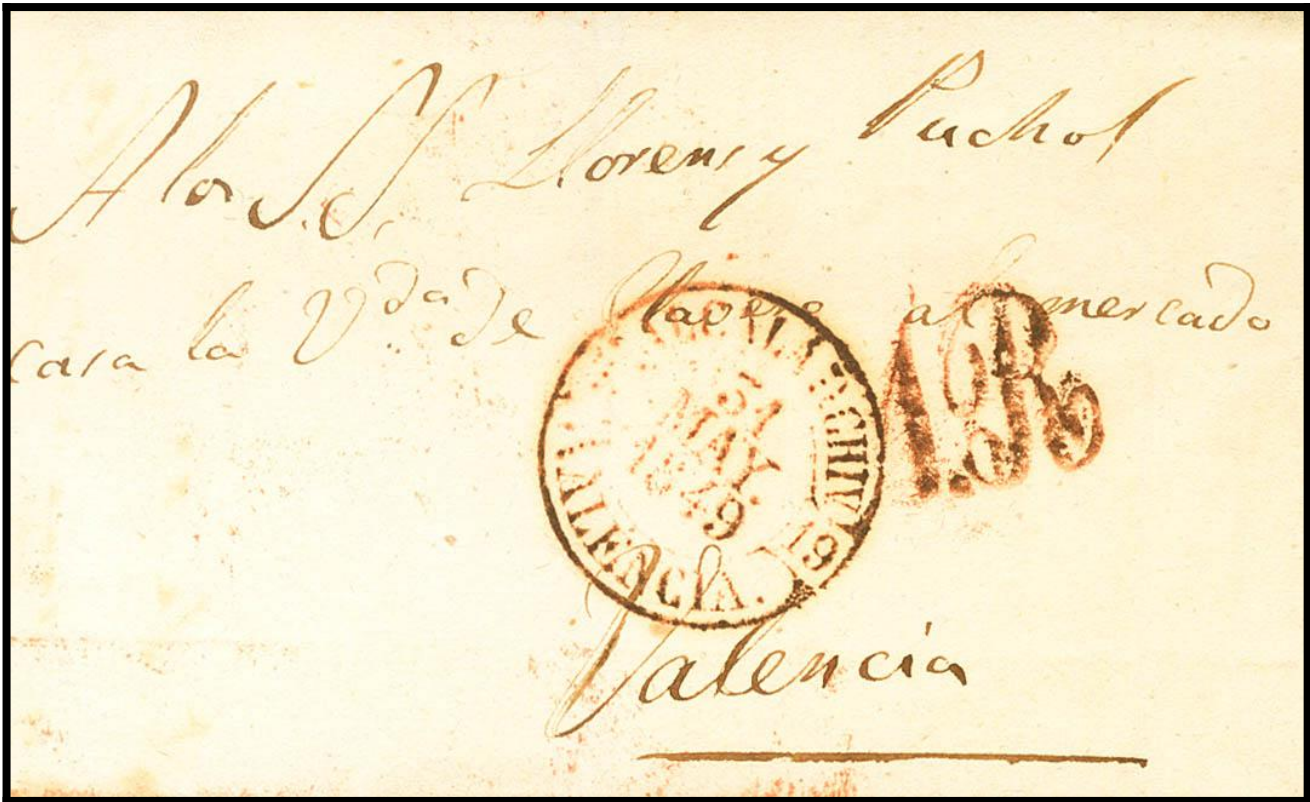 A los S.S. Llorens y Puchol
casa la V.da de Clavero al mercado
31
MAY
1849
VALENCIA.
19
1.R
Valencia